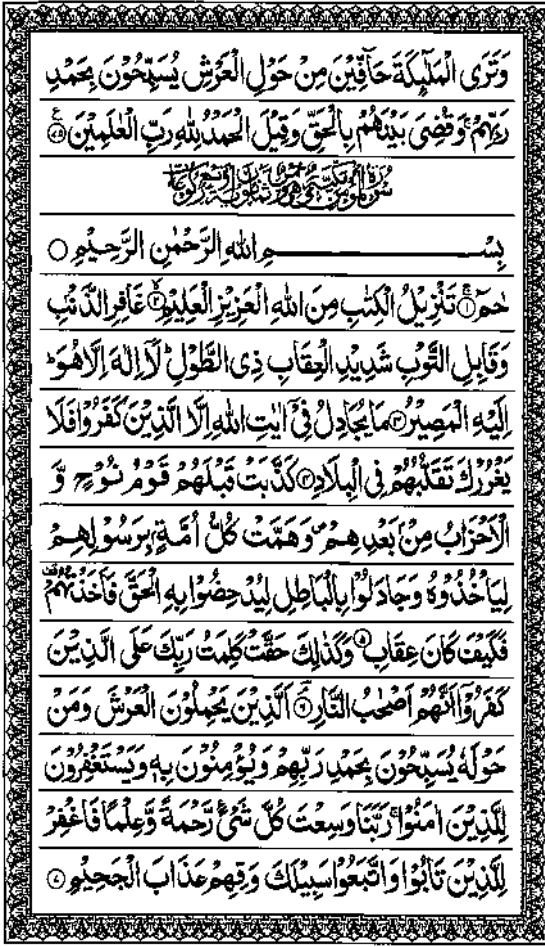 وَتَرَى الْمَلٰٓئِكَةَ حَآفِّيْنَ مِنْ حَوْلِ الْعَرْشِ يُسَبِّحُوْنَ بِحَمْدِ
رَبِّهِمْ ۚ وَقُضِىَ بَيْنَهُمْ بِالْحَقِّ وَقِيْلَ الْحَمْدُ لِلّٰهِ رَبِّ الْعٰلَمِيْنَ ﴿۷۵﴾ ع
بِسْمِ اللهِ الرَّحْمٰنِ الرَّحِيْمِ ○
حٰمٓ ﴿۱﴾ تَنْزِيْلُ الْكِتٰبِ مِنَ اللهِ الْعَزِيْزِ الْعَلِيْمِ ﴿۲﴾ غَافِرِ الذَّنْۢبِ
وَقَابِلِ التَّوْبِ شَدِيْدِ الْعِقَابِ ذِى الطَّوْلِ ؕ لَآ اِلٰهَ اِلَّا هُوَ ؕ
اِلَيْهِ الْمَصِيْرُ ﴿۳﴾ مَا يُجَادِلُ فِىْٓ اٰيٰتِ اللهِ اِلَّا الَّذِيْنَ كَفَرُوْا فَلَا
يَغْرُرْكَ تَقَلُّبُهُمْ فِى الْبِلَادِ ﴿۴﴾ كَذَّبَتْ قَبْلَهُمْ قَوْمُ نُوْحٍ وَّ
الْاَحْزَابُ مِنْۢ بَعْدِهِمْ ۪ وَهَمَّتْ كُلُّ اُمَّةٍۭ بِرَسُوْلِهِمْ
لِيَاْخُذُوْهُ وَجَادَلُوْا بِالْبَاطِلِ لِيُدْحِضُوْا بِهِ الْحَقَّ فَاَخَذْتُهُمْ
فَكَيْفَ كَانَ عِقَابِ ﴿۵﴾ وَكَذٰلِكَ حَقَّتْ كَلِمَتُ رَبِّكَ عَلَى الَّذِيْنَ
كَفَرُوْٓا اَنَّهُمْ اَصْحٰبُ النَّارِ ﴿۶﴾ اَلَّذِيْنَ يَحْمِلُوْنَ الْعَرْشَ وَمَنْ
حَوْلَهٗ يُسَبِّحُوْنَ بِحَمْدِ رَبِّهِمْ وَيُؤْمِنُوْنَ بِهٖ وَيَسْتَغْفِرُوْنَ
لِلَّذِيْنَ اٰمَنُوْا ۚ رَبَّنَا وَسِعْتَ كُلَّ شَىْءٍ رَّحْمَةً وَّعِلْمًا فَاغْفِرْ
لِلَّذِيْنَ تَابُوْا وَاتَّبَعُوْا سَبِيْلَكَ وَقِهِمْ عَذَابَ الْجَحِيْمِ ﴿۷﴾